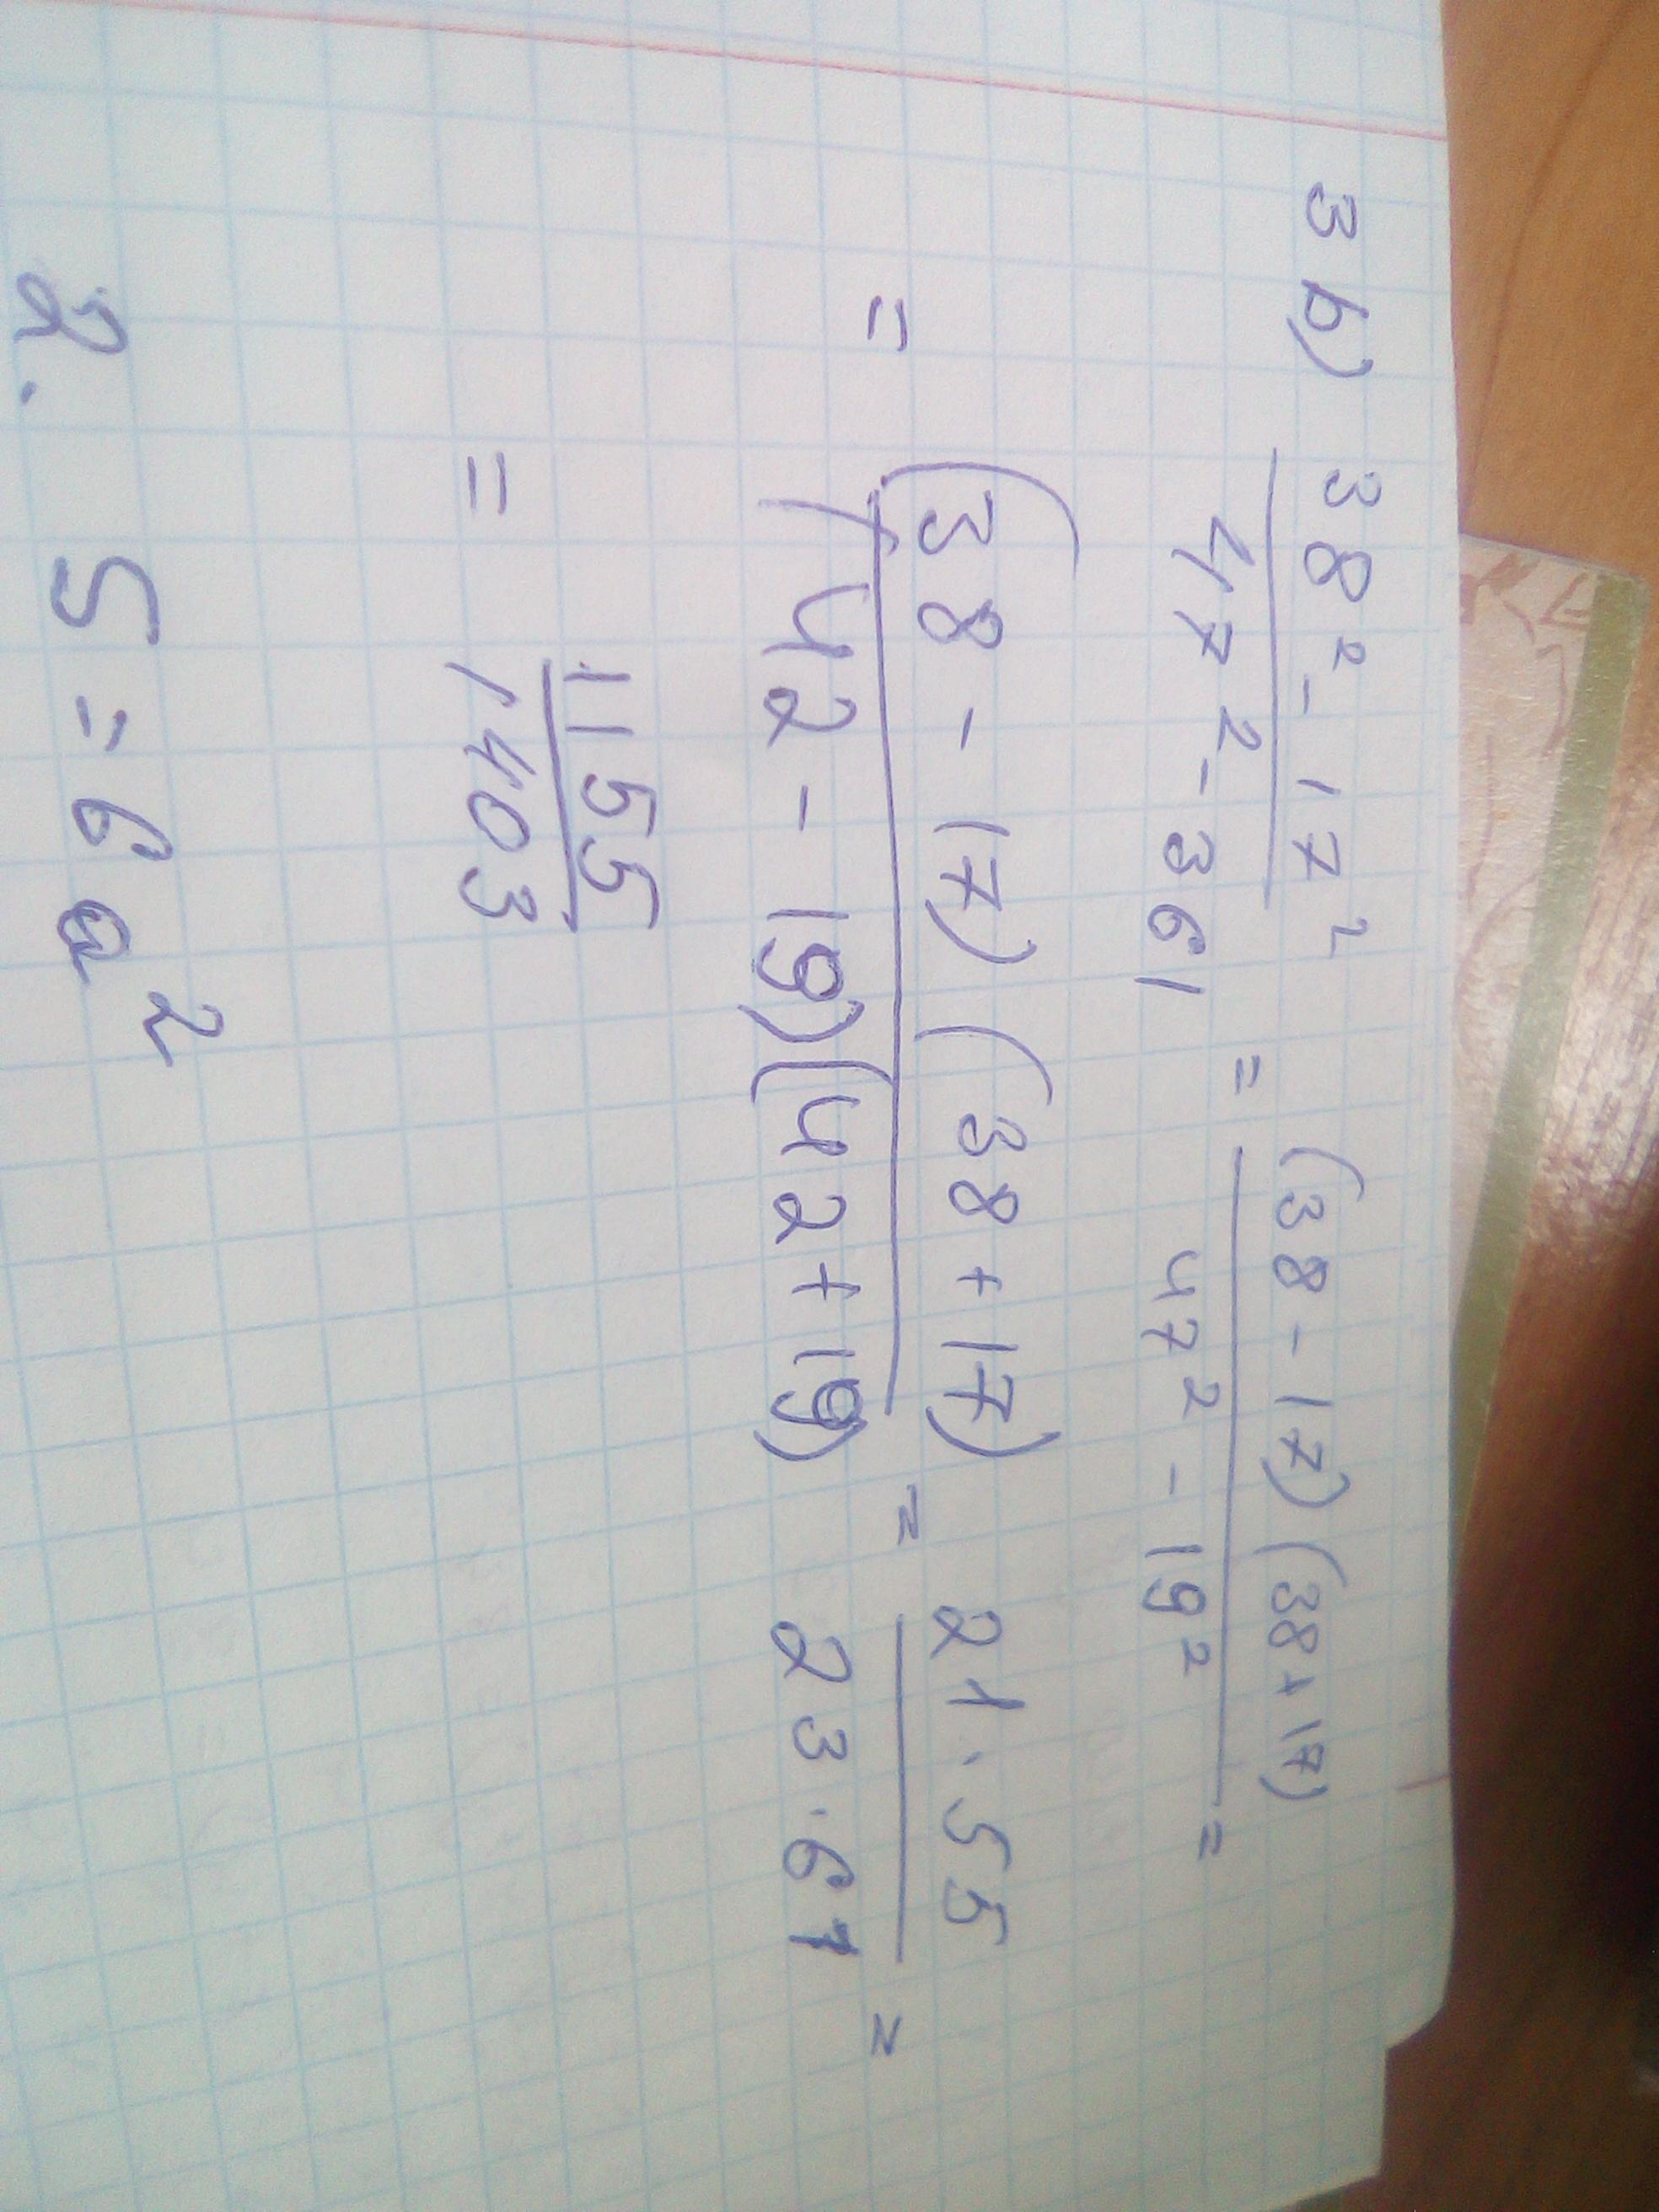 3 b) (38² - 17²)/(47² - 361) = ((38 - 17)(38 + 17))/(47² - 19²) =
= ((38 - 17)(38 + 17))/((42 - 19)(42 + 19)) = (21 · 55)/(23 · 61) =
= 1155/1403
2. S = 6a²